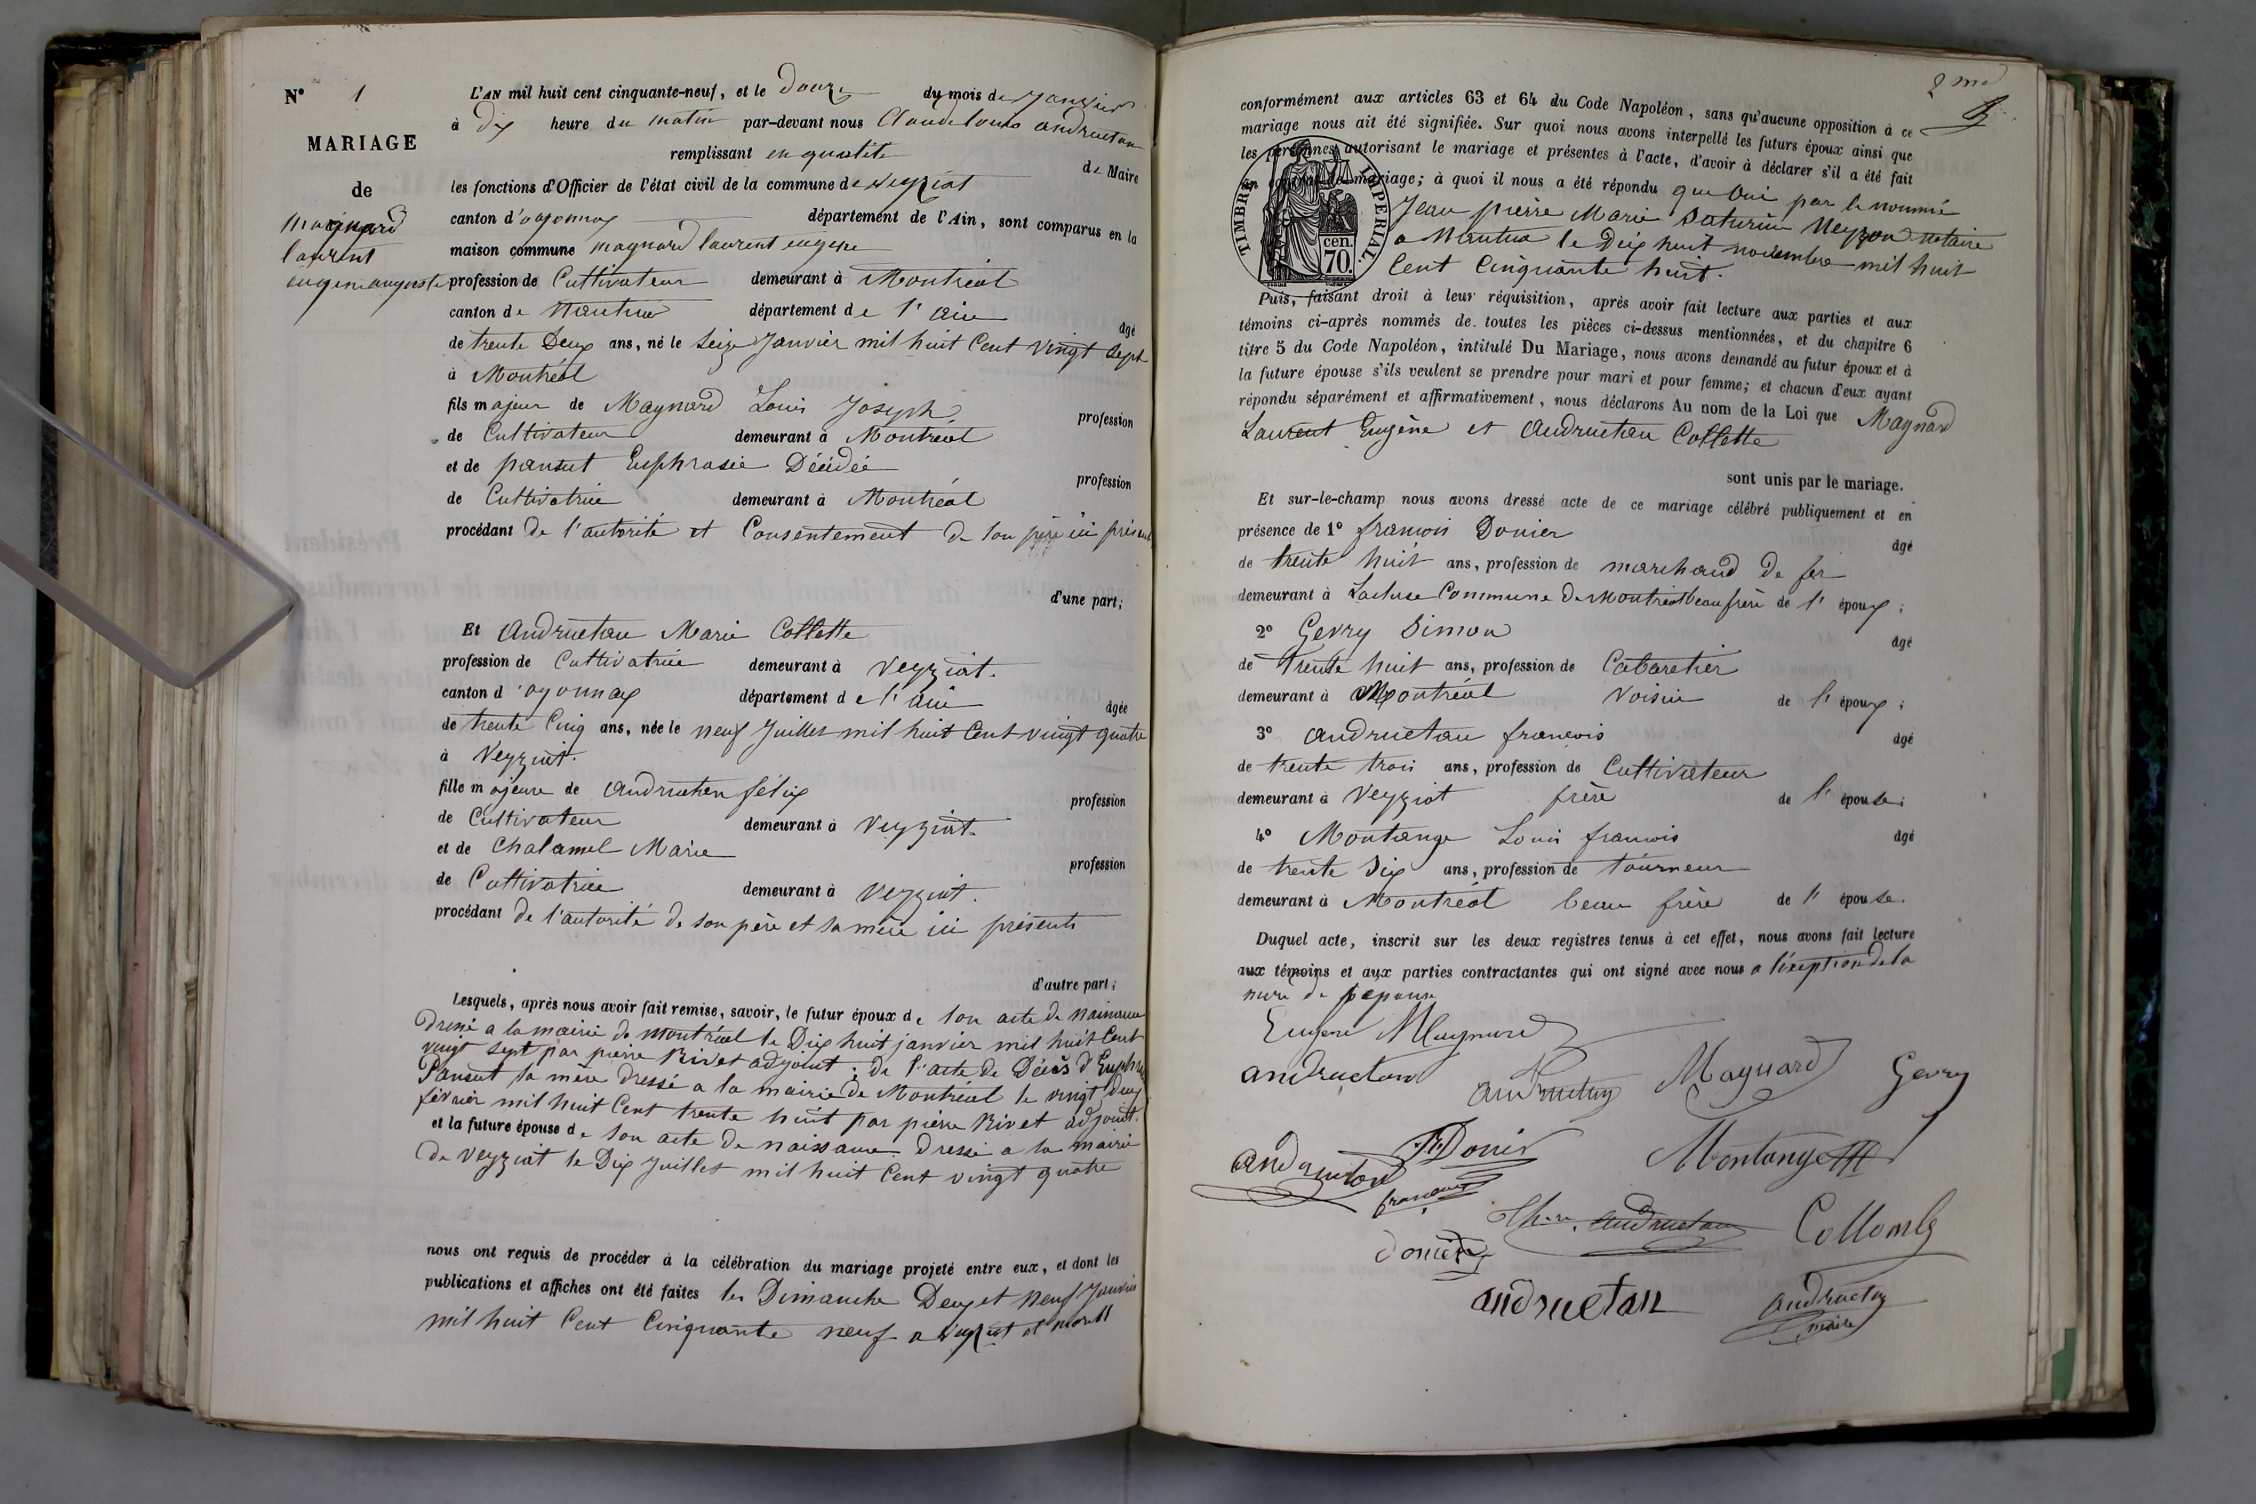 N° 1
MARIAGE
de
Magnard
laurent
eugene auguste
L'AN mil huit cent cinquante-neuf, et le Douze du mois de Janvier
à Dix heure du matin par-devant nous Claude louis andruetan
remplissant en qualité de Maire
les fonctions d'Officier de l'état civil de la commune de veyziat
canton d'oyonnax département de l'Ain, sont comparus en la
maison commune magnard laurent eugene
profession de Cultivateur demeurant à Montréal
canton de Nantua département de l'ain âgé
de trente Deux ans, né le Seize Janvier mil huit Cent vingt Sept
à Montréal
fils majeur de Magnard Louis Joseph profession
de Cultivateur demeurant à Montréal
et de pansut Euphrasie Décédée profession
de Cultivatrice demeurant à Montréal
procédant De l'autorité et Consentement De son père ici présent
d'une part;
Et andruetan Marie Collette
profession de Cultivatrice demeurant à Veyziat.
canton d'oyonnax département de l'ain âgée
de trente Cinq ans, née le neuf Juillet mil huit Cent vingt quatre
à Veyziat.
fille majeure de andruetan félix profession
de Cultivateur demeurant à Veyziat.
et de Chalamel Marie profession
de Cultivatrice demeurant à Veyziat.
procédant de l'autorité de son père et sa mère ici présents
d'autre part;
Lesquels, après nous avoir fait remise, savoir, le futur époux de son acte de naissance
Dressé a la mairie de Montréal le Dix huit janvier mil huit Cent
vingt sept par pierre Rivet adjoint; de l'acte de Décès d'Euphra
Pansut sa mère dressé a la mairie De Montréal le vingt Deux
février mil huit Cent trente huit par pierre Rivet adjoint.
et la future épouse de son acte de naissance dressé a la mairie
De Veyziat le Dix Juillet mil huit Cent vingt quatre
nous ont requis de procéder à la célébration du mariage projeté entre eux, et dont les
publications et affiches ont été faites les Dimanche Deux et neuf Janvier
mil huit Cent Cinquante neuf a veyziat et montl
conformément aux articles 63 et 64 du Code Napoléon, sans qu'aucune opposition à ce
mariage nous ait été signifiée. Sur quoi nous avons interpellé les futurs époux ainsi que
les personnes autorisant le mariage et présentes à l'acte, d'avoir à déclarer s'il a été fait
un contrat de mariage; à quoi il nous a été répondu que Oui par le nommé
Jean pierre Marie Saturin Neyron notaire
a Nantua le Dix huit novembre mil huit
Cent Cinquante huit.
TIMBRE IMPERIAL.
cen.
70.
Puis, faisant droit à leur réquisition, après avoir fait lecture aux parties et aux
témoins ci-après nommés de toutes les pièces ci-dessus mentionnées, et du chapitre 6
titre 5 du Code Napoléon, intitulé Du Mariage, nous avons demandé au futur époux et à
la future épouse s'ils veulent se prendre pour mari et pour femme; et chacun d'eux ayant
répondu séparément et affirmativement, nous déclarons Au nom de la Loi que Magnard
Laurent Eugène et andruetan Collette
sont unis par le mariage.
Et sur-le-champ nous avons dressé acte de ce mariage célébré publiquement et en
présence de 1° francois Donier âgé
de trente huit ans, profession de marchand de fer
demeurant à Lacluse Commune De Montréal beau frère de l'époux;
2° Gevry Simon âgé
de trente huit ans, profession de Cabaretier
demeurant à Montréal voisin de l'époux;
3° andruetan francois âgé
de trente trois ans, profession de Cultivateur
demeurant à Veyziat frère de l'épouse;
4° Montange Louis francois âgé
de trente Six ans, profession de tourneur
demeurant à Montréal beau frère de l'épouse.
Duquel acte, inscrit sur les deux registres tenus à cet effet, nous avons fait lecture
aux témoins et aux parties contractantes qui ont signé avec nous a l'exeption de la
mere de l'epouse
Eugene Magnard
andructan andruetan Magnard Gevry
andruetan Donier Montange
francois
Donier andruetan Collomb
andruetan andruetan
maire